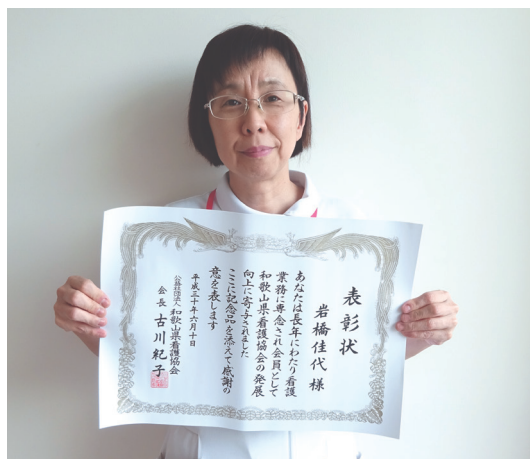 表彰状
岩橋佳代 様
あなたは長年にわたり看護
業務に専念され会員として
和歌山県看護協会の発展
向上に寄与されました
ここに記念品を添えて感謝の
意を表します
平成三十年六月十日
公益社団法人 和歌山県看護協会
会長 古川紀子